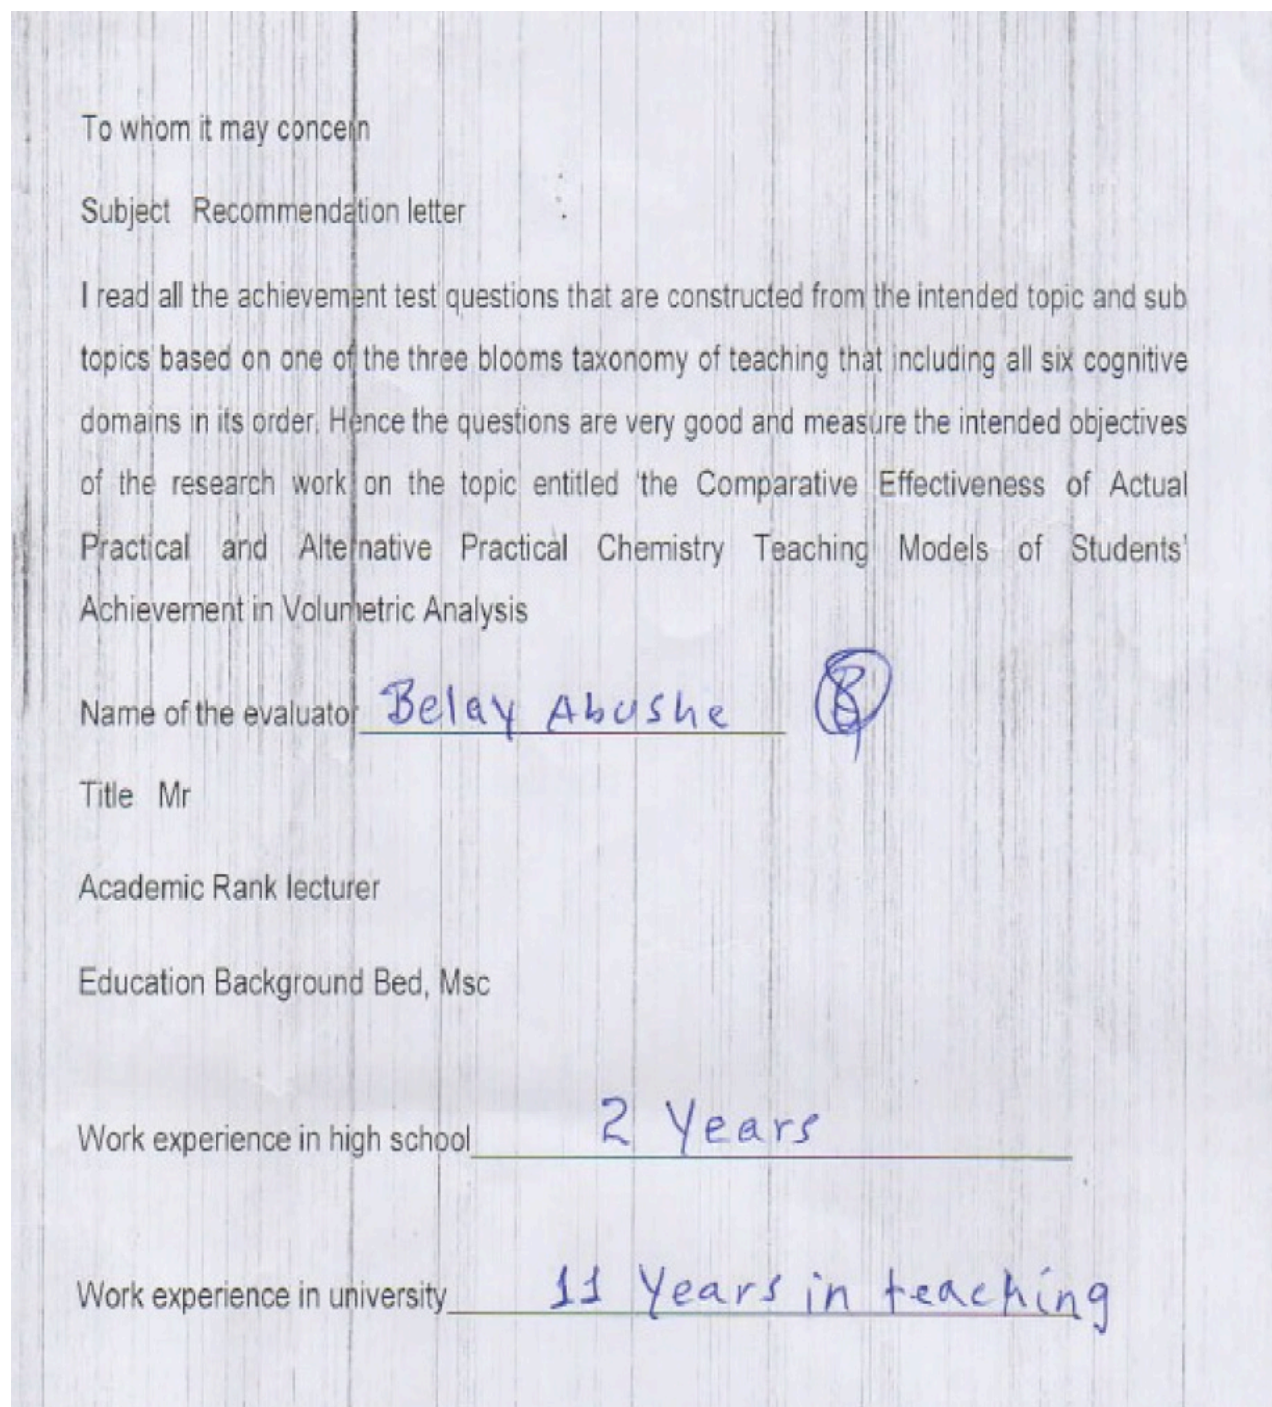 To whom it may concern
Subject Recommendation letter
I read all the achievement test questions that are constructed from the intended topic and sub
topics based on one of the three blooms taxonomy of teaching that including all six cognitive
domains in its order. Hence the questions are very good and measure the intended objectives
of the research work on the topic entitled 'the Comparative Effectiveness of Actual
Practical and Alternative Practical Chemistry Teaching Models of Students'
Achievement in Volumetric Analysis
Name of the evaluator Belay Abushe
Title Mr
Academic Rank lecturer
Education Background Bed, Msc
Work experience in high school 2 Years
Work experience in university 11 Years in teaching